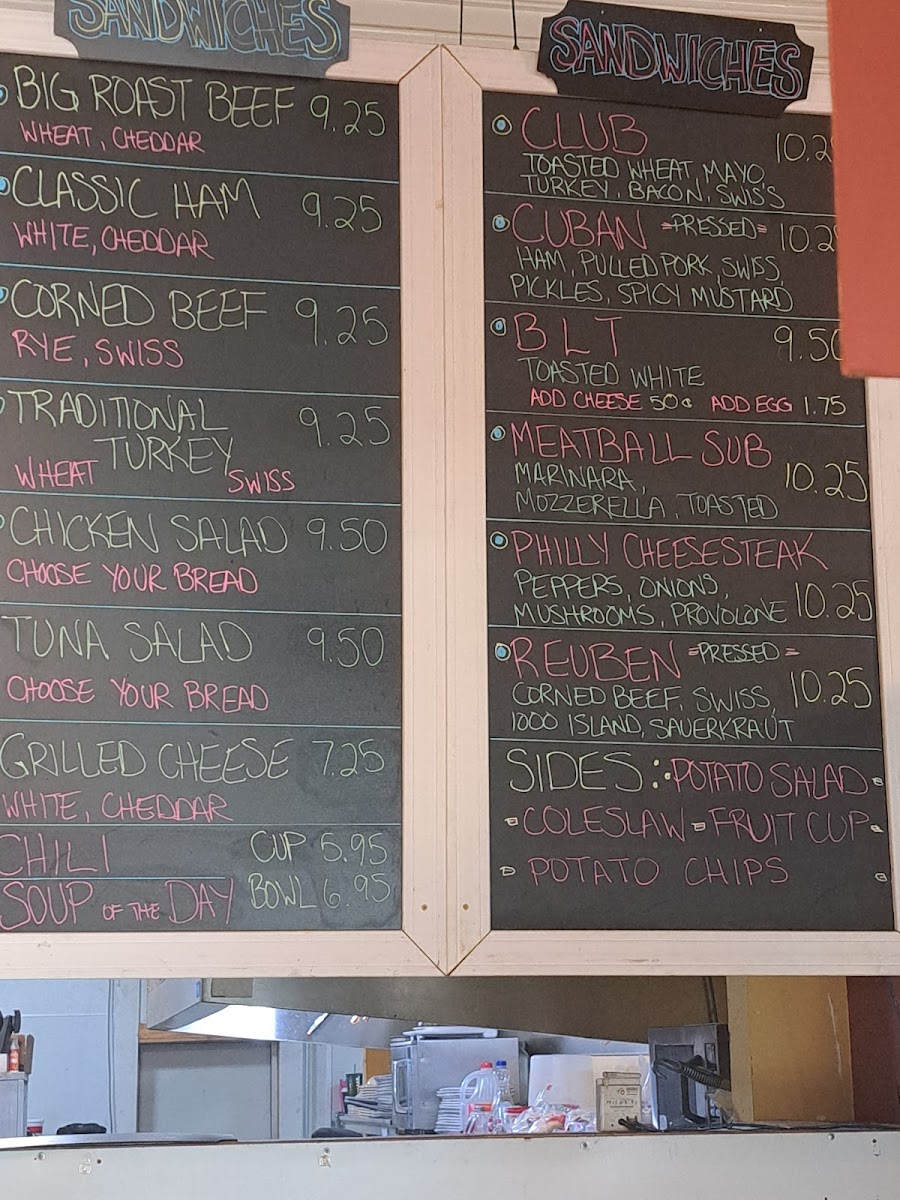 SANDWICHES
BIG ROAST BEEF 9.25
WHEAT, CHEDDAR
CLASSIC HAM 9.25
WHITE, CHEDDAR
CORNED BEEF 9.25
RYE, SWISS
TRADITIONAL
TURKEY 9.25
WHEAT SWISS
CHICKEN SALAD 9.50
CHOOSE YOUR BREAD
TUNA SALAD 9.50
CHOOSE YOUR BREAD
GRILLED CHEESE 7.25
WHITE, CHEDDAR
CHILI CUP 5.95
SOUP OF THE DAY BOWL 6.95
SANDWICHES
CLUB 10.2
TOASTED WHEAT, MAYO,
TURKEY, BACON, SWISS
CUBAN =PRESSED= 10.2
HAM, PULLED PORK, SWISS,
PICKLES, SPICY MUSTARD
BLT 9.50
TOASTED WHITE
ADD CHEESE 50¢ ADD EGG 1.75
MEATBALL SUB
MARINARA, 10.25
MOZZERELLA, TOASTED
PHILLY CHEESESTEAK
PEPPERS, ONIONS,
MUSHROOMS, PROVOLONE 10.25
REUBEN =PRESSED=
CORNED BEEF, SWISS, 10.25
1000 ISLAND, SAUERKRAUT
SIDES: POTATO SALAD
COLESLAW FRUIT CUP
POTATO CHIPS